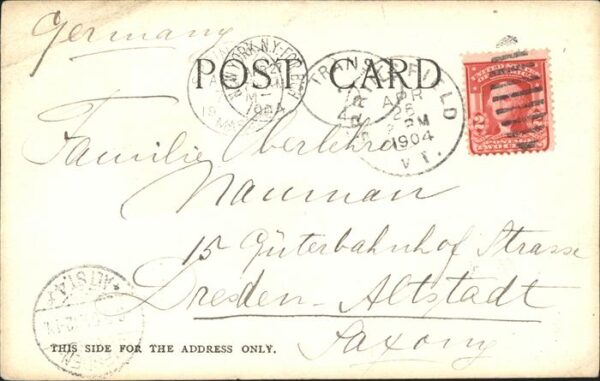 Germany
POST CARD
NEW YORK, N.Y.
1904
TRANSIT
FIELD
APR
25
PM
1904
VT.
UNITED STATES
OF AMERICA
2 2
Familie Oberlehrer
Nauman
15 Güterbahnhof Strasse
Dresden-Altstadt
Saxony
ALTST.
THIS SIDE FOR THE ADDRESS ONLY.